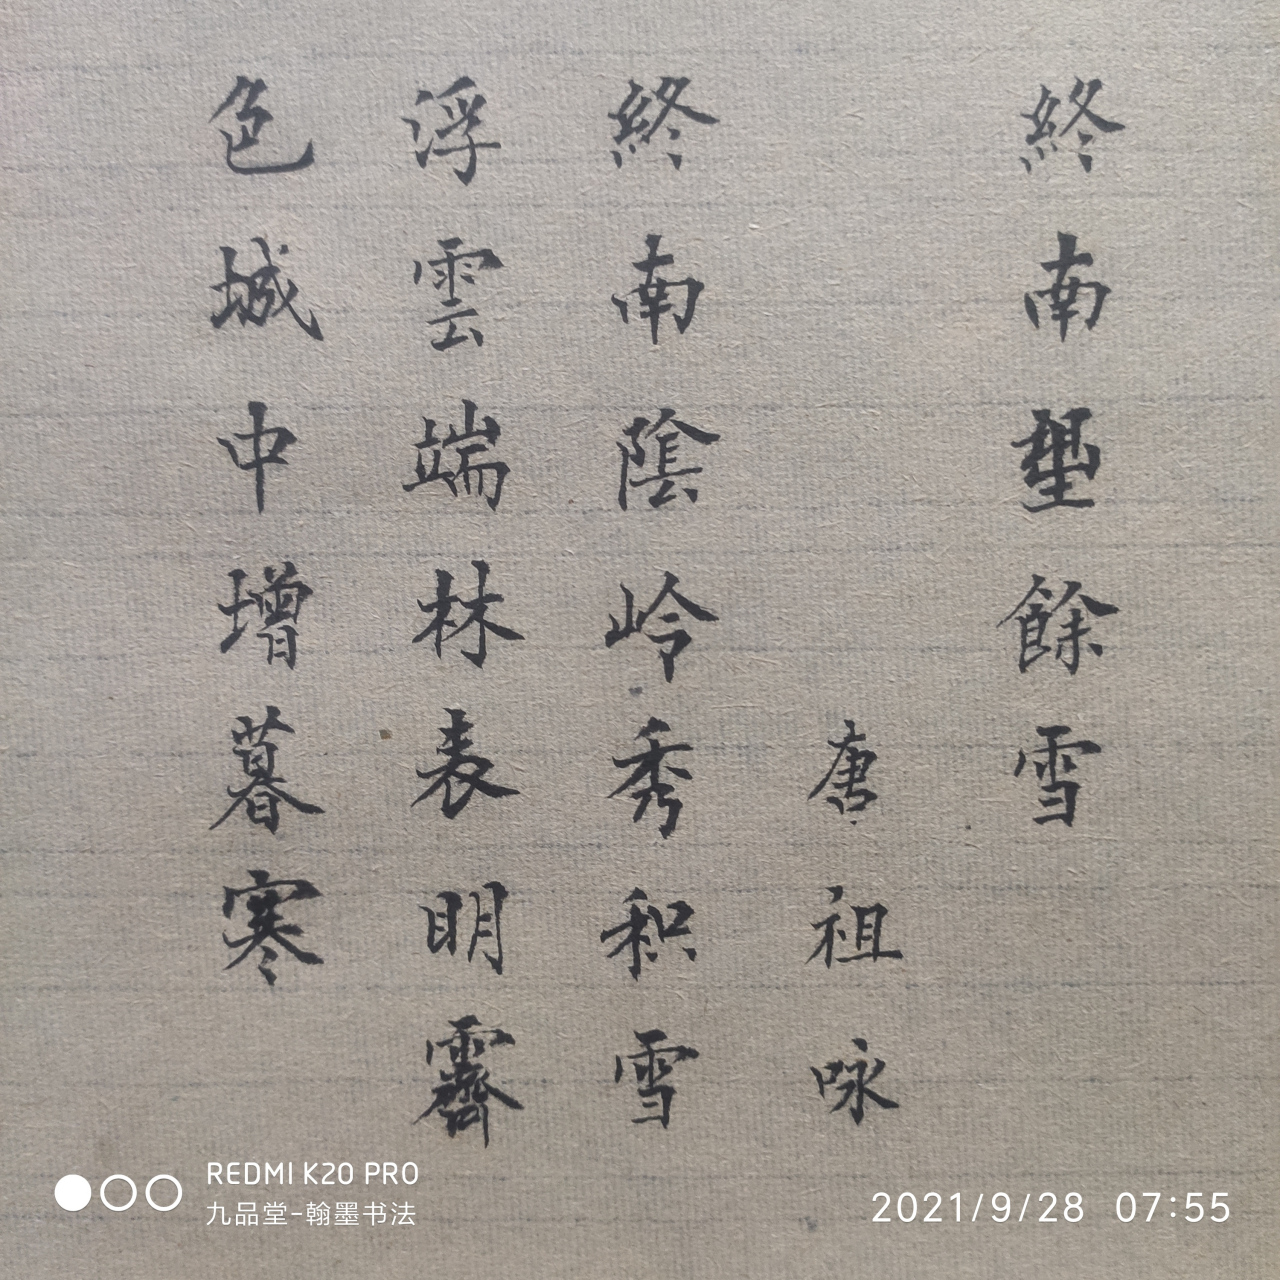 終南朢餘雪
唐祖咏
終南陰岭秀积雪
浮雲端林表明霽
色城中增暮寒
REDMI K20 PRO
九品堂-翰墨书法
2021/9/28 07:55